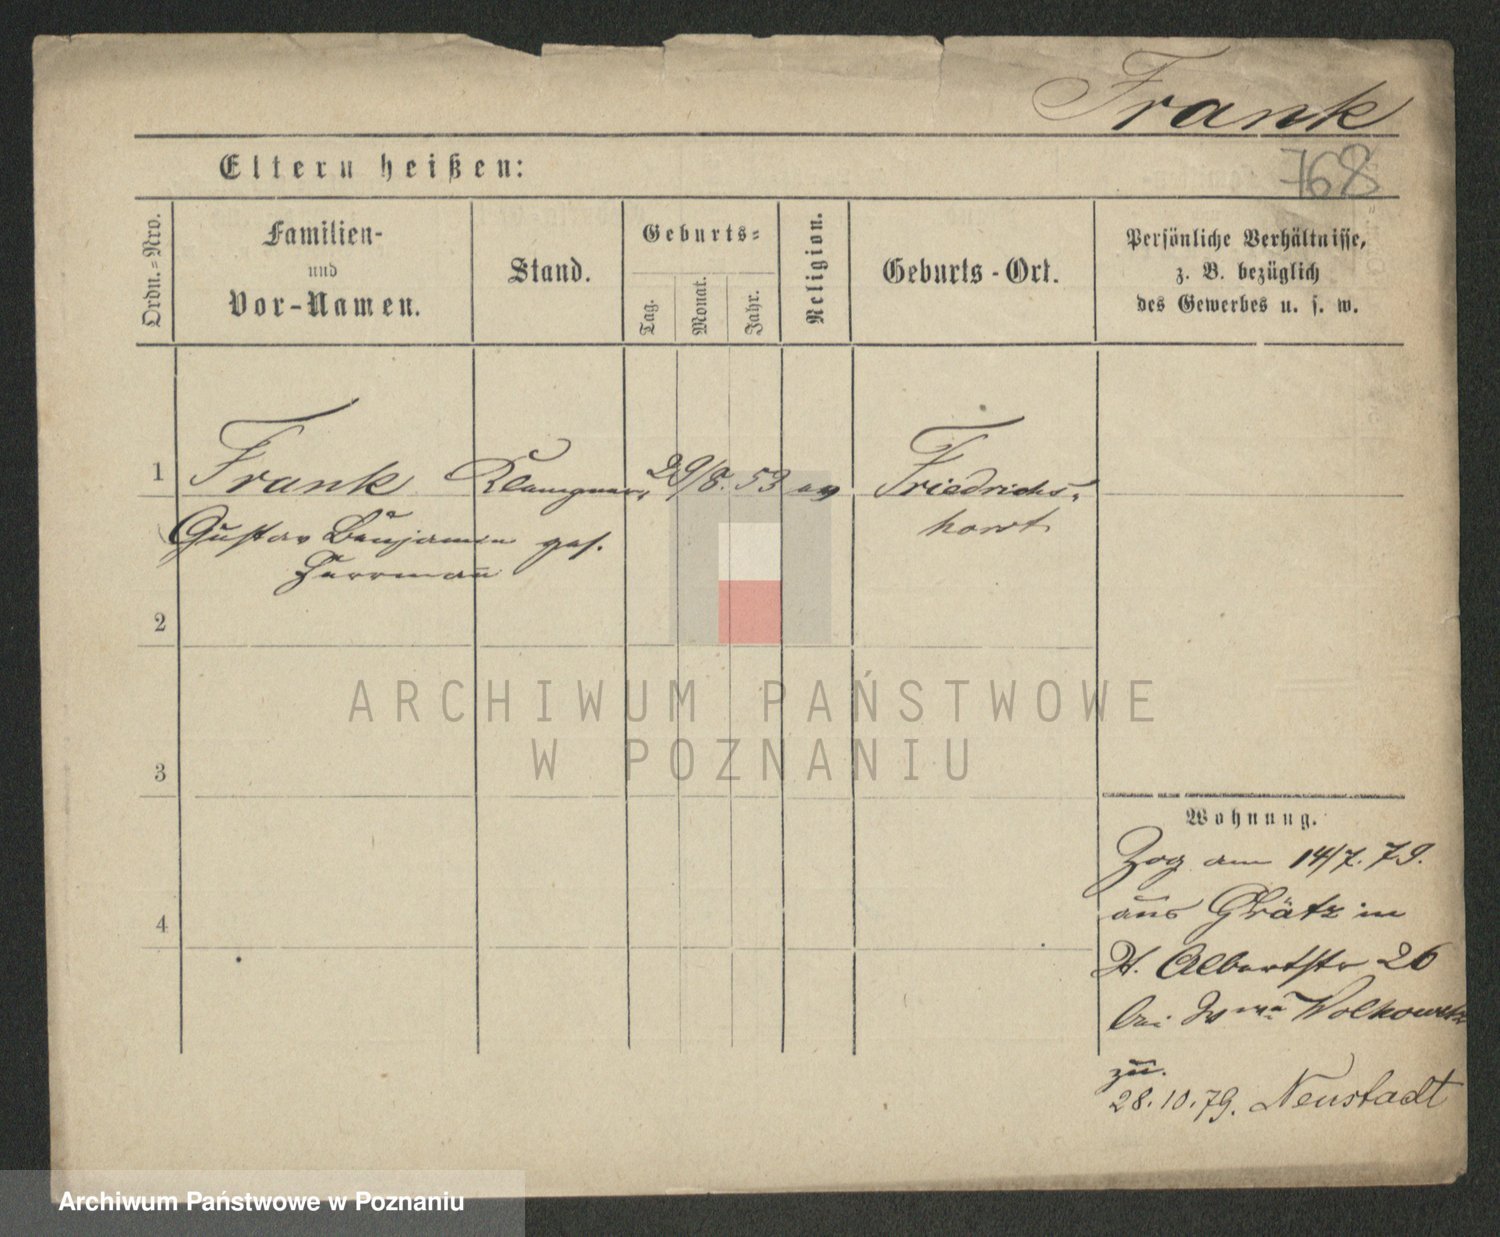 Frank
768
Eltern heißen:
Ordn.=Nro.
Familien-
und
Vor-Namen.
Stand.
Geburts=
Tag.
Monat.
Jahr.
Religion.
Geburts-Ort.
Persönliche Verhältnisse,
z. B. bezüglich
des Gewerbes u. s. w.
1 Frank 29/8. 53 ev Friedrichs-
Gustav Benjamin horst
Herrmann
2
3
4
ARCHIWUM PAŃSTWOWE
W POZNANIU
Wohnung.
Zog am 14/7. 79.
aus Grätz in
St. Albertstr 26
bei
zu.
28.10.79. Neustadt
Archiwum Państwowe w Poznaniu